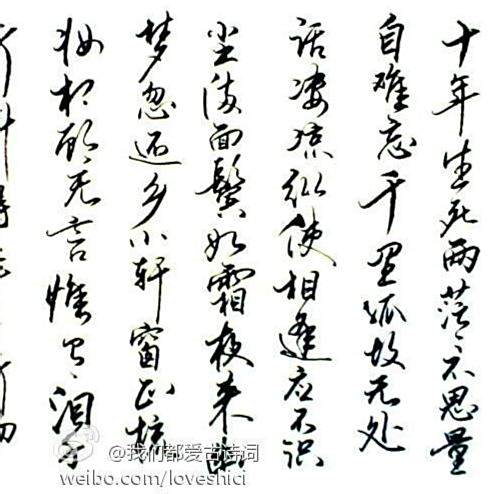 十年生死两茫々不思量
自难忘千里孤坟无处
话凄凉纵使相逢应不识
尘满面鬓如霜夜来幽
梦忽还乡小轩窗正梳
妆相顾无言惟有泪千
@我们都爱古诗词
weibo.com/loveshici